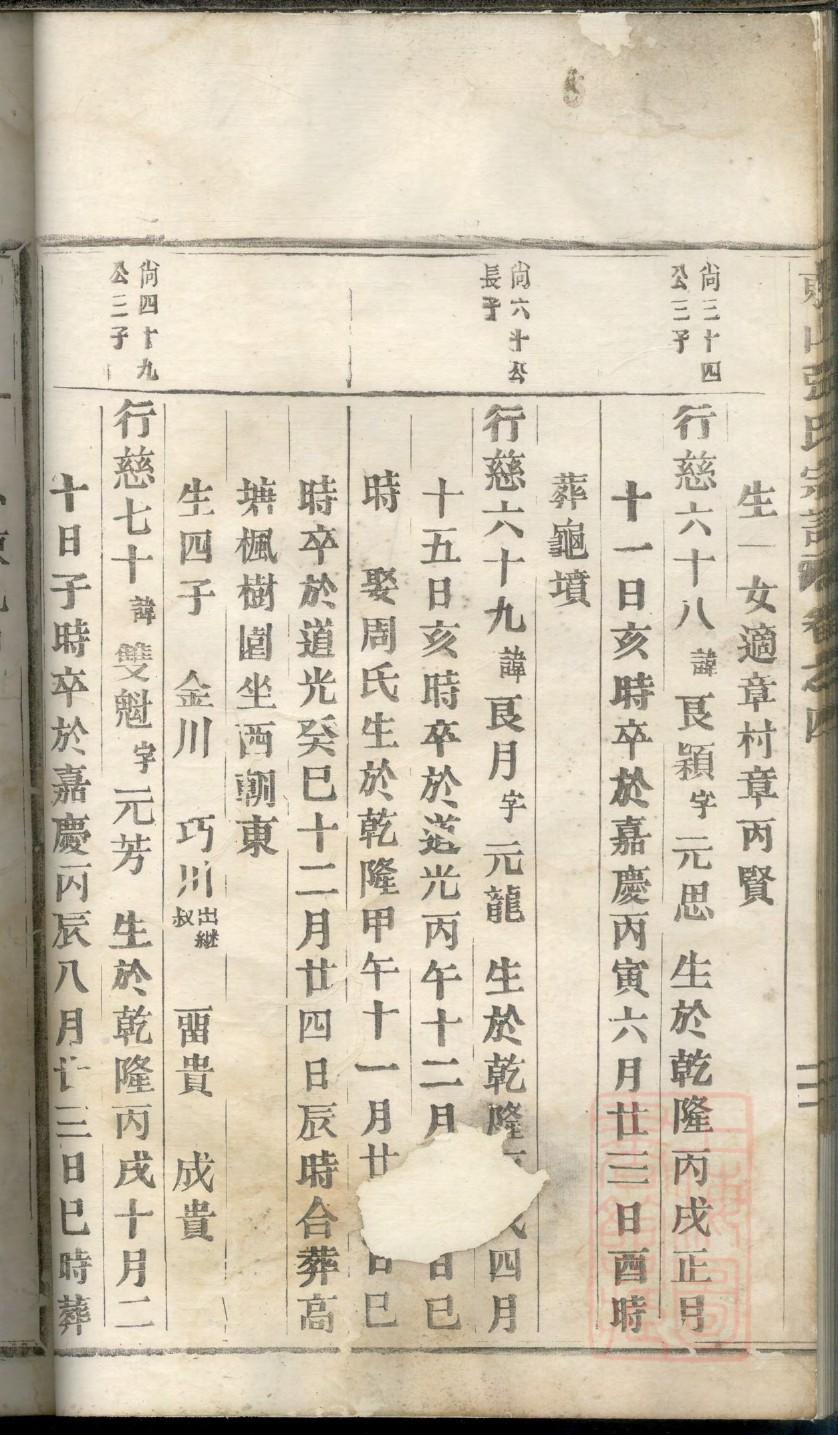 張氏宗譜
卷之四
生一女適章村章丙賢
尚三十四
公三子
行慈六十八諱艮穎字元思 生於乾隆丙戌正月
十一日亥時卒於嘉慶丙寅六月廿三日酉時
葬龜墳
尚六十公
長子
行慈六十九諱艮月字元龍 生於乾隆 四月
十五日亥時卒於道光丙午十二月 日巳
時 娶周氏生於乾隆甲午十一月廿 日巳
時卒於道光癸巳十二月廿四日辰時合葬高
塘楓樹園坐西朝東
生四子 金川 巧川出継叔 畱貴 成貴
尚四十九
公三子
行慈七十諱雙魁字元芳 生於乾隆丙戌十月二
十日子時卒於嘉慶丙辰八月廿三日巳時葬